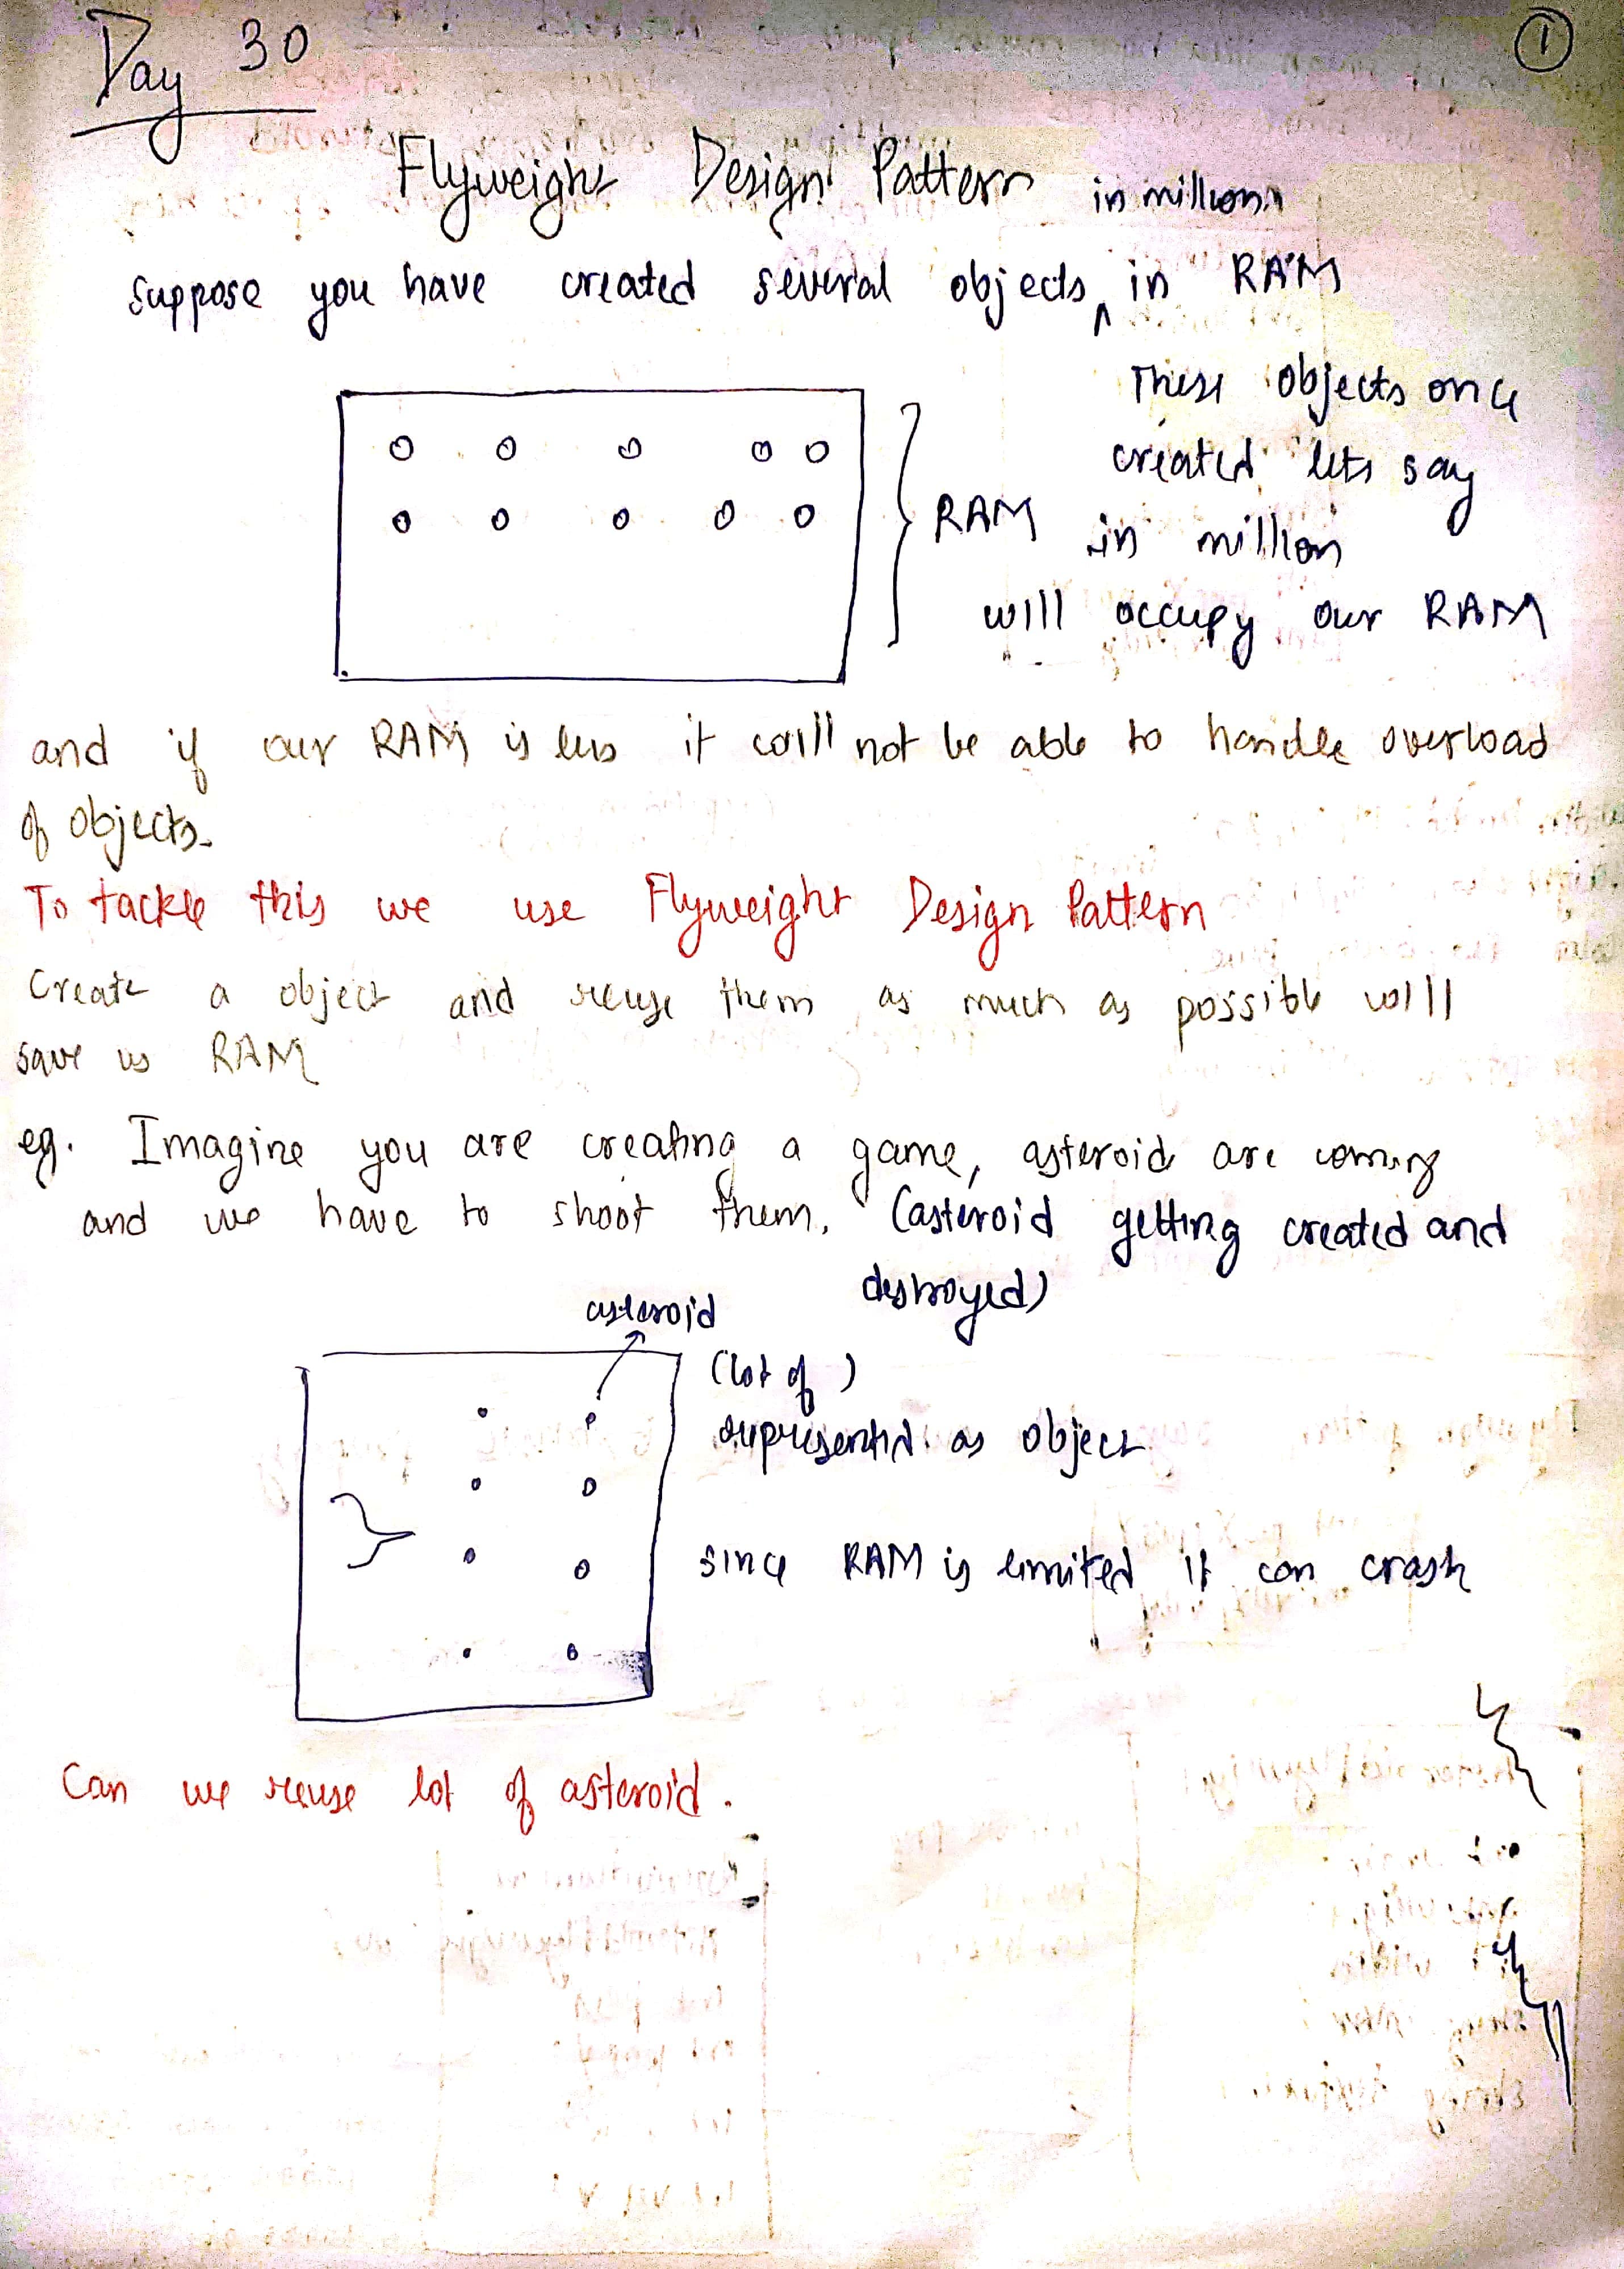 Day 30
①
Flyweight Design Pattern
in millions
suppose you have created several objects ^ in RAM
These objects once
created lets say
RAM in million
will occupy our RAM
and if our RAM is less it will not be able to handle overload
of objects.
To tackle this we use Flyweight Design Pattern
Create a object and reuse them as much as possible will
save us RAM
eg. Imagine you are creating a game, asteroid are coming
and we have to shoot them. (asteroid getting created and
destroyed)
asteroid
(lot of )
represented as object
since RAM is limited it can crash
Can we reuse lot of asteroid.